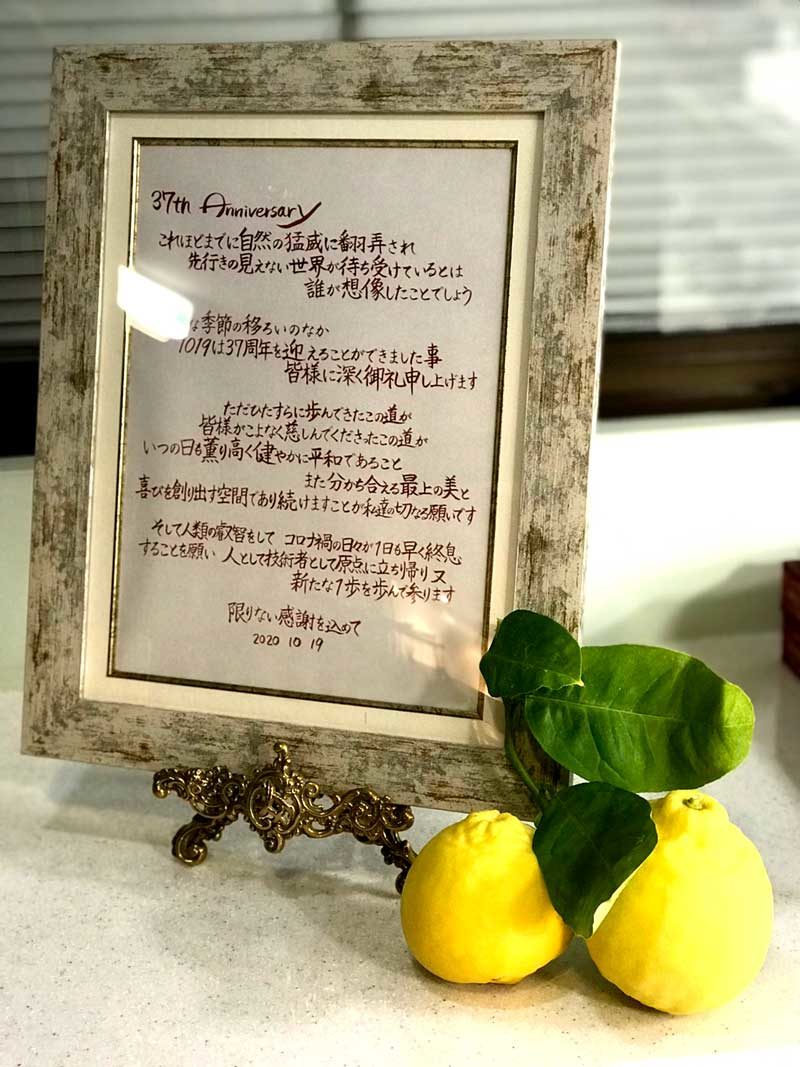 37th Anniversary
これほどまでに自然の猛威に翻弄され
先行きの見えない世界が待ち受けているとは
誰が想像したことでしょう
な季節の移ろいのなか
1019は37周年を迎えることができました事
皆様に深く御礼申し上げます
ただひたすらに歩んできたこの道が
皆様がこよなく慈しんでくださったこの道が
いつの日も薫り高く健やかに平和であること
また分かち合える最上の美と
喜びを創り出す空間であり続けますことが私達の切なる願いです
そして人類の叡智をして コロナ禍の日々が1日も早く終息
することを願い 人として技術者として原点に立ち帰り又
新たな1歩を歩んで参ります
限りない感謝を込めて
2020 10 19